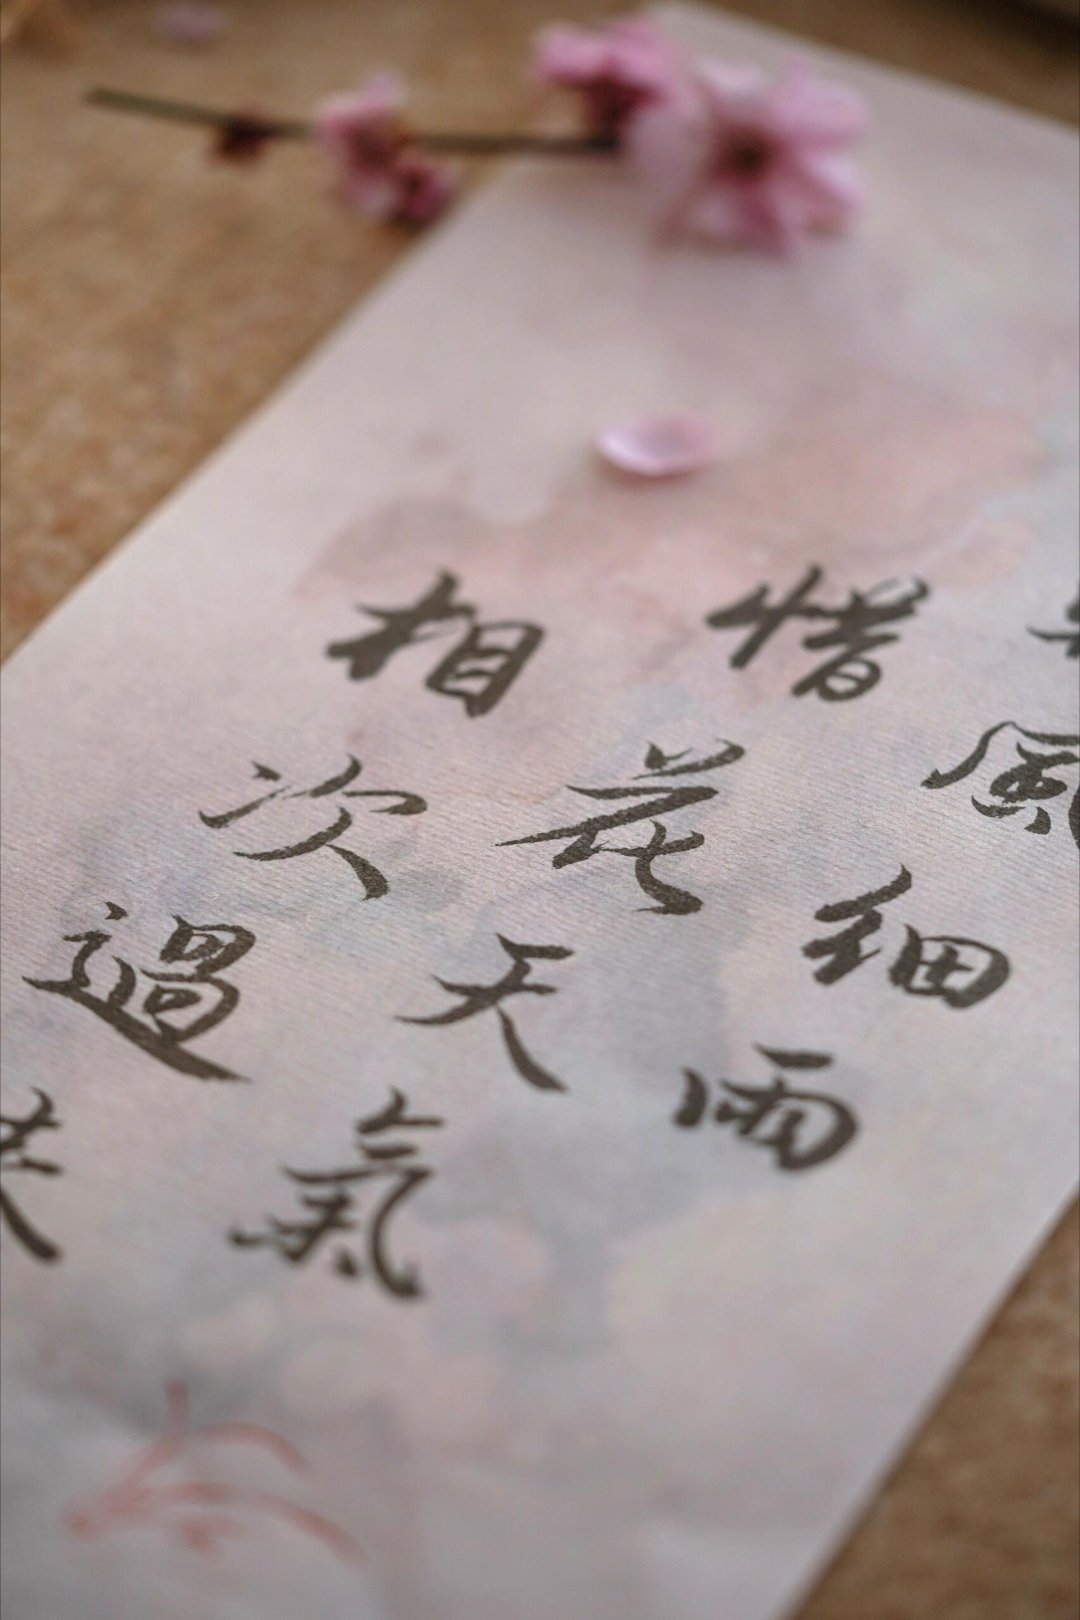 風細雨
惜花天氣
相次過